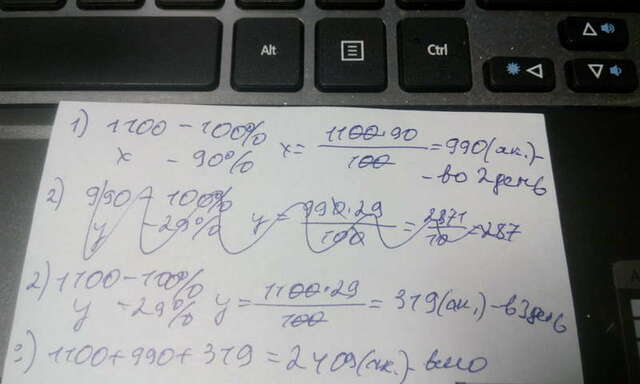 Alt
Ctrl
1) 1100 - 100%
x - 90% x = 1100·90/100 = 990(ак.) -
- во 2 день
2) 990 - 100%
y - 29% y = 990·29/100 = 2871/10 = 287
2) 1100 - 100%
y - 29% y = 1100·29/100 = 319(ак.) - в 3 день
3) 1100 + 990 + 319 = 2409(ак.) - всего